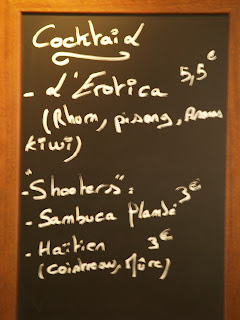 Cocktail
- L'Erotica 5,5€
(Rhum, pisang, Ananas
kiwi)
- "Shooters":
- Sambuca Flambé 3€
- Haïtien 3€
(Cointreau, Mûre)